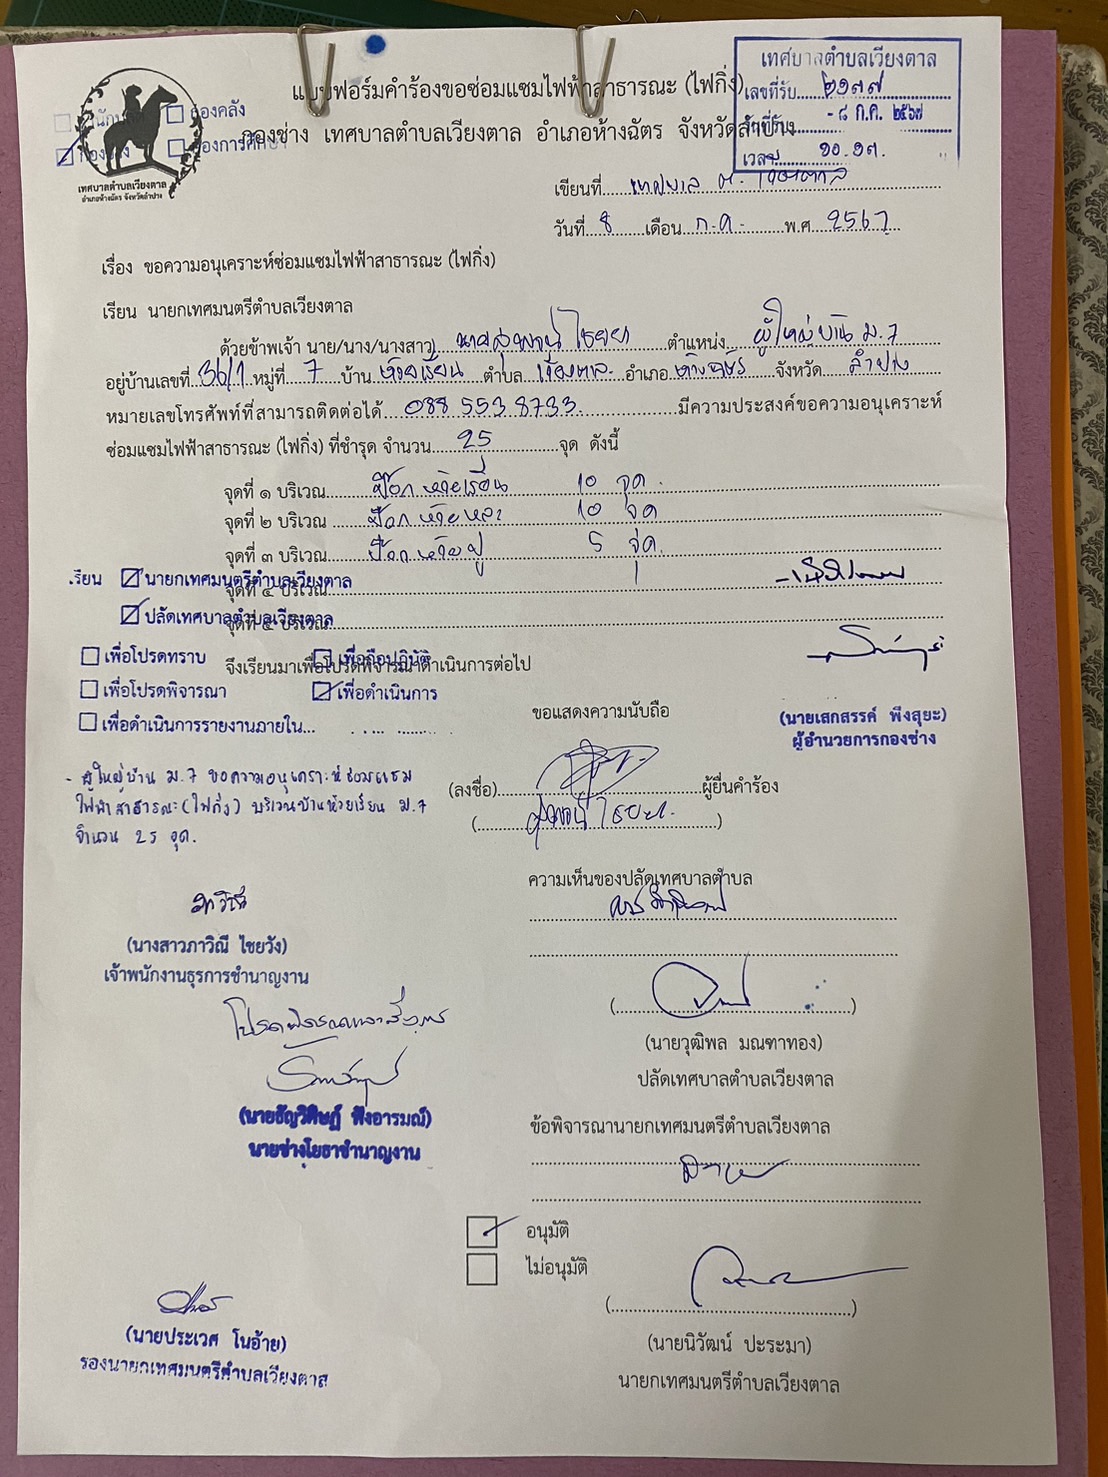 แบบฟอร์มคำร้องขอซ่อมแซมไฟฟ้าสาธารณะ (ไฟกิ่ง)
กองช่าง เทศบาลตำบลเวียงตาล อำเภอห้างฉัตร จังหวัดลำปาง
เทศบาลตำบลเวียงตาล
เลขที่รับ ๒๑๓๗
วันที่รับ - ๘ ก.ค. ๒๕๖๗
เวลา ๑๐.๑๓.
กองคลัง
กองช่าง กองการศึกษา
เทศบาลตำบลเวียงตาล
อำเภอห้างฉัตร จังหวัดลำปาง
เขียนที่ เทศบาล ต. เวียงตาล
วันที่ 8 เดือน ก.ค. พ.ศ. 2567
เรื่อง ขอความอนุเคราะห์ซ่อมแซมไฟฟ้าสาธารณะ (ไฟกิ่ง)
เรียน นายกเทศมนตรีตำบลเวียงตาล
ด้วยข้าพเจ้า นาย/นาง/นางสาว ไชยยา ตำแหน่ง ผู้ใหญ่บ้าน ม.7
อยู่บ้านเลขที่ 36/1 หมู่ที่ 7 บ้าน ห้วยเรียน ตำบล เวียงตาล อำเภอ ห้างฉัตร จังหวัด ลำปาง
หมายเลขโทรศัพท์ที่สามารถติดต่อได้ 088 553 8733 มีความประสงค์ขอความอนุเคราะห์
ซ่อมแซมไฟฟ้าสาธารณะ (ไฟกิ่ง) ที่ชำรุด จำนวน 25 จุด ดังนี้
จุดที่ ๑ บริเวณ ป๊อก ห้วยเรียน 10 จุด
จุดที่ ๒ บริเวณ ป๊อก ห้วยหละ 10 จุด
จุดที่ ๓ บริเวณ ป๊อก ห้วยปู 5 จุด
เรียน นายกเทศมนตรีตำบลเวียงตาล
จุดที่ ๔ บริเวณ
ปลัดเทศบาลตำบลเวียงตาล
จุดที่ ๕ บริเวณ
เพื่อโปรดทราบ เพื่อถือปฏิบัติ
จึงเรียนมาเพื่อโปรดพิจารณาดำเนินการต่อไป
เพื่อโปรดพิจารณา เพื่อดำเนินการ
เพื่อดำเนินการรายงานภายใน...
ขอแสดงความนับถือ
(นายเสกสรรค์ พึงสุยะ)
ผู้อำนวยการกองช่าง
- ผู้ใหญ่บ้าน ม.7 ขอความอนุเคราะห์ซ่อมแซม
ไฟฟ้าสาธารณะ (ไฟกิ่ง) บริเวณบ้านห้วยเรียน ม.7
จำนวน 25 จุด.
(ลงชื่อ) ผู้ยื่นคำร้อง
ความเห็นของปลัดเทศบาลตำบล
(นางสาวภาวิณี ไชยวัง)
เจ้าพนักงานธุรการชำนาญงาน
(นายวุฒิพล มณฑาทอง)
ปลัดเทศบาลตำบลเวียงตาล
(นายธัญวิศิษฏ์ ฟังอารมณ์)
นายช่างโยธาชำนาญงาน
ข้อพิจารณานายกเทศมนตรีตำบลเวียงตาล
อนุมัติ
ไม่อนุมัติ
(นายประเวศ โนอ้าย)
รองนายกเทศมนตรีตำบลเวียงตาล
(นายนิวัฒน์ ปะระมา)
นายกเทศมนตรีตำบลเวียงตาล